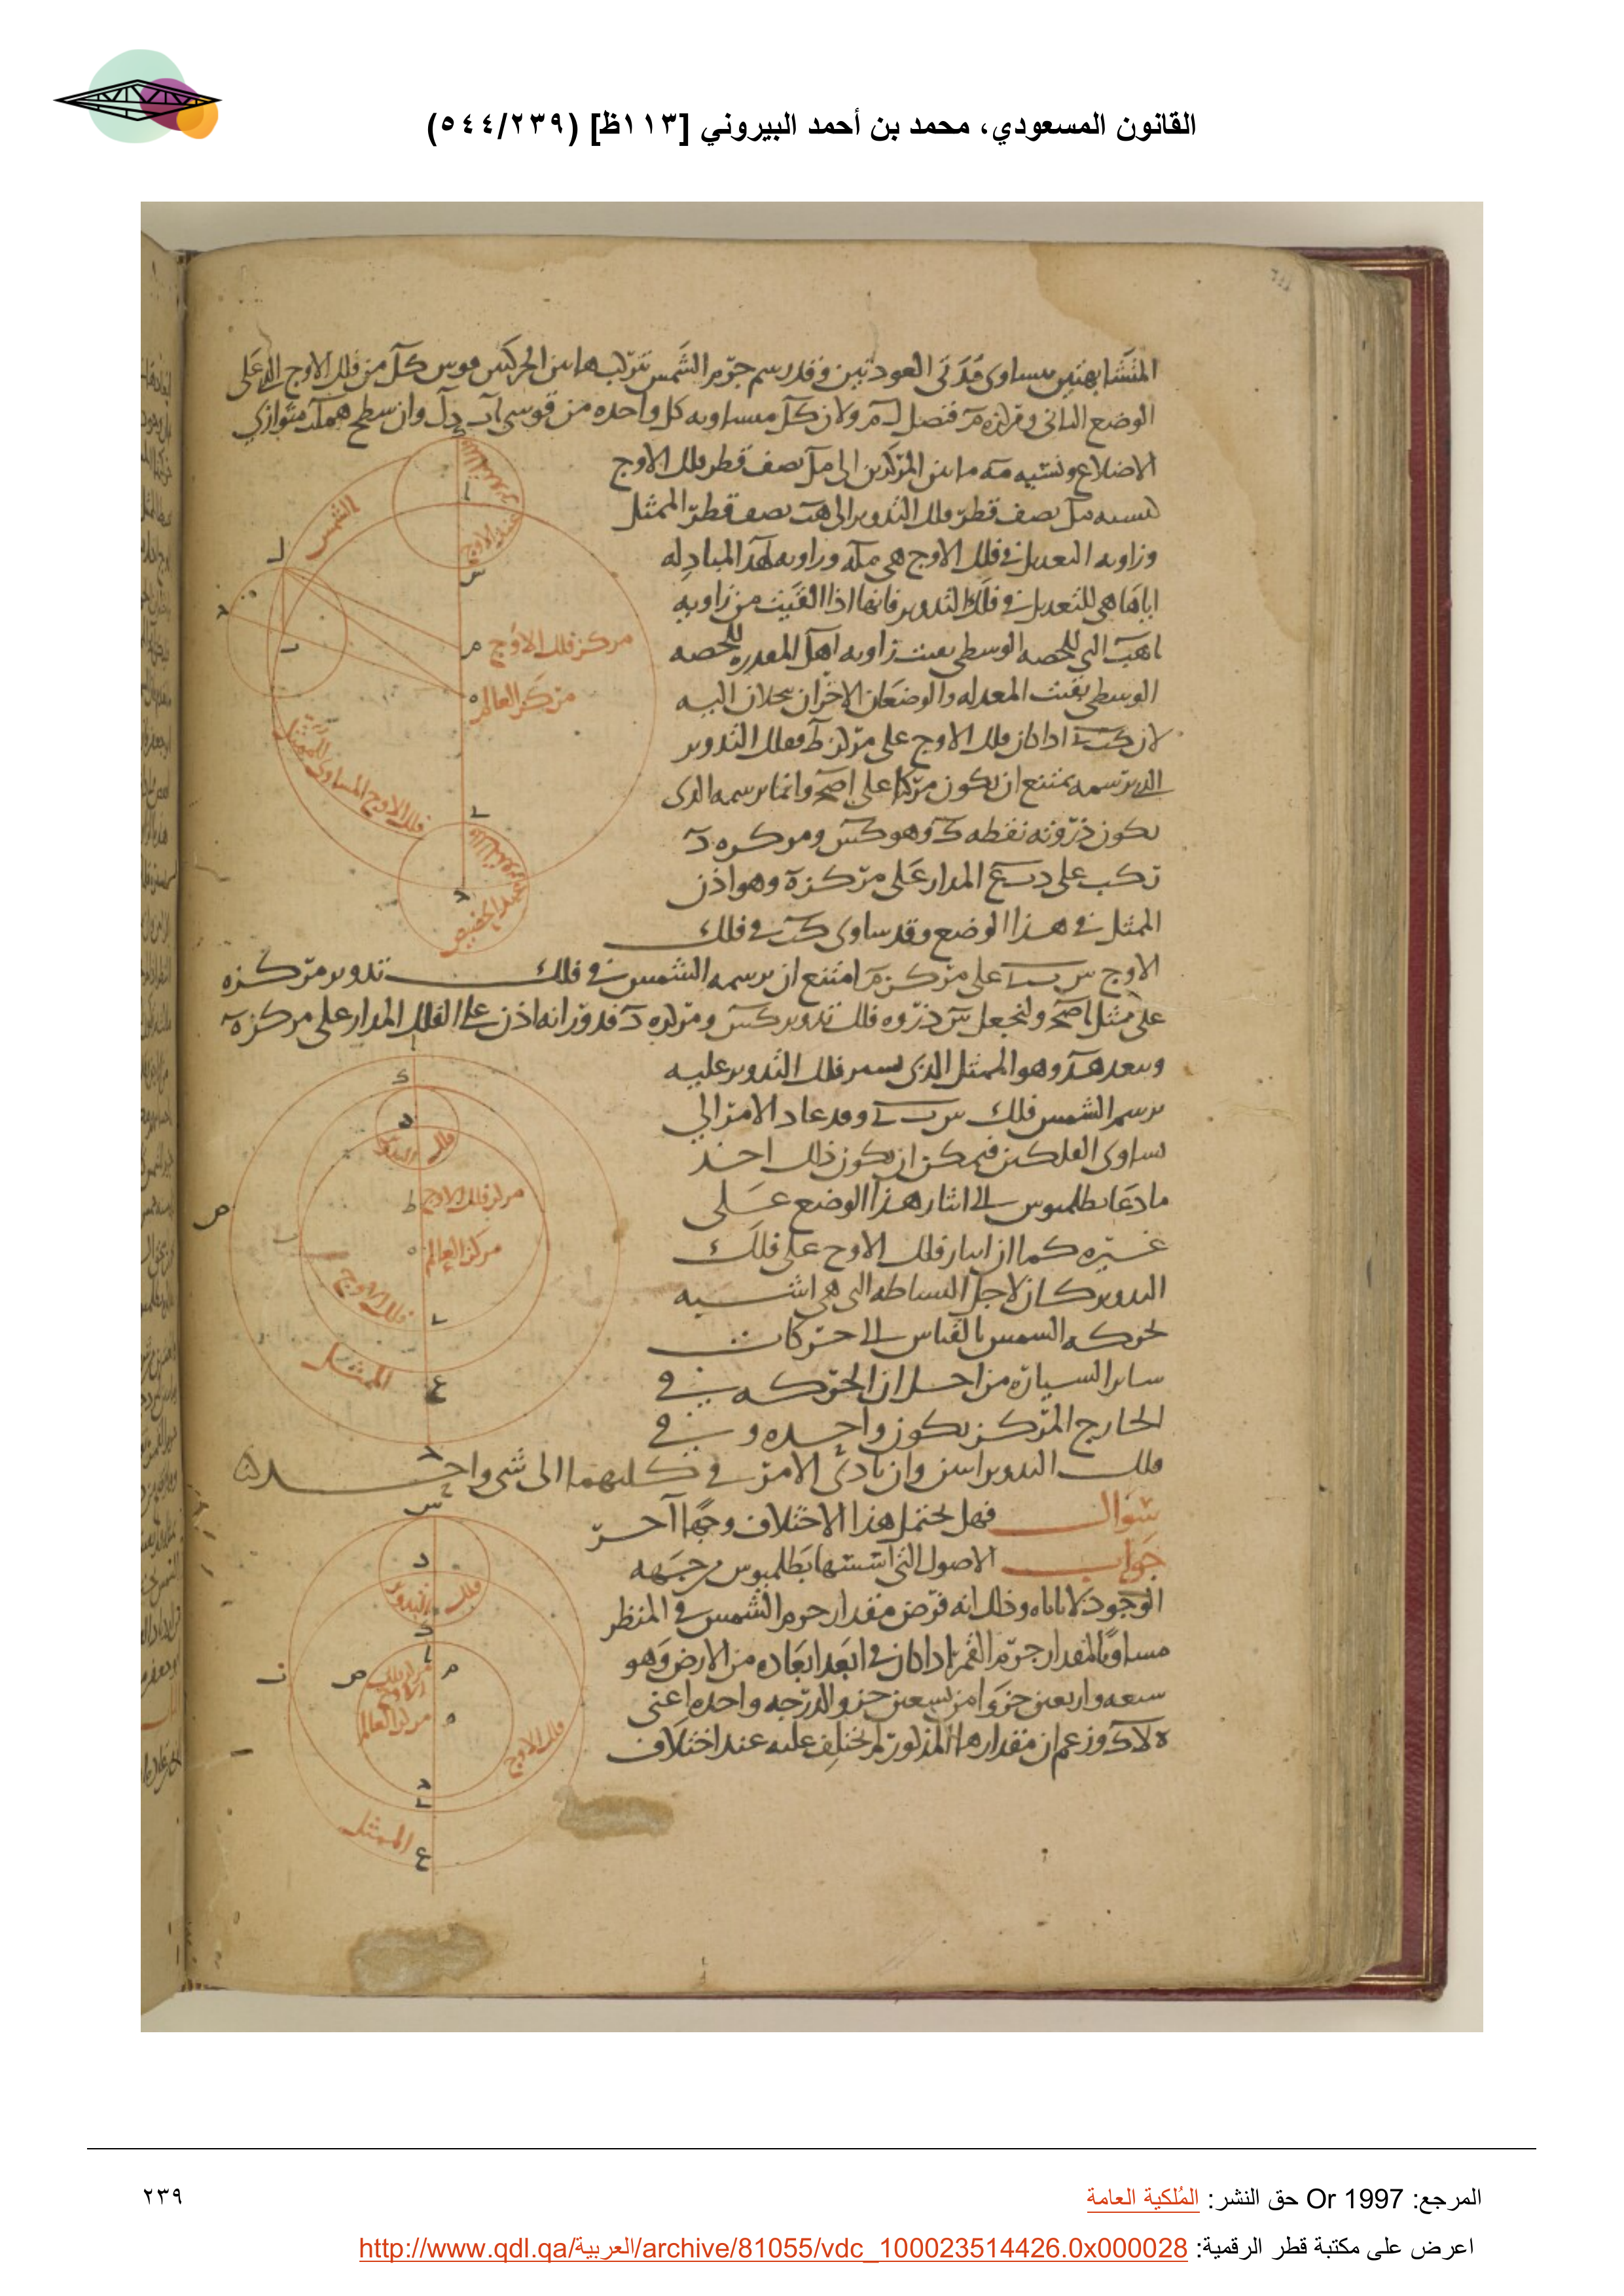 القانون المسعودي، محمد بن أحمد البيروني [١١٣ظ] (٥٤٤/٢٣٩)
المتشابهتين يساوى مدتى العودتين وقد رسم جرم الشمس بتركب هاتين الحركتين قوس كل من فلك الاوج الذى على
الوضع الثانى ومركزه م فنصل ل م ولان كل مساويه كل واحده من قوسى اب دل وان سطح هم ل متوازى
الاضلاع ونسبه مه ما بين المركزين الى مل نصف قطر فلك الاوج
كنسبه بل نصف قطر فلك التدوير الى هب نصف قطر الممثل
وزاويه التعديل فى فلك الاوج هى مله وزاويه لهد المبادله
اياها هى للتعديل فى فلك التدوير فانها اذا القيت من زاويه
اهب التى للحصه الوسطى بقيت زاويه اهل المعدله للحصه
الوسطى بقيت المعدله والوضعان الاخران يحلان اليه
لان كب اذا كان فلك الاوج على مركز ط ففلك التدوير
الذى رسمه يمتنع ان يكون مركبا على اصح وانما يرسمه الذى
يكون ذروته نقطه ك وهو كس ومركزه د
تركب على دسع المدار على مركز ه وهو اذن
الممثل فى هذا الوضع وقد ساوى كب فى فلك
الاوج س ب على مركز م امتنع ان يرسمه الشمس فى فلك تدوير مركزه
على ممثل اصح ولنجعل س ذروه فلك تدوير كس ومركزه د فدورانه اذن على الفلك المدار على مركز ه
وببعد هد وهو الممثل الذى يسير فلك التدوير عليه
يرسم الشمس فلك س ب وقد عاد الامر الى
تساوى الفلكين فيمكن ان يكون ذلك احد
ما دعا بطلميوس الى ايثار هذا الوضع على
غيره كما ان ايثار فلك الاوج على فلك
التدوير كان لاجل البساطه التى هى اشبه
بحركه الشمس بالقياس الى حركات
ساير السياره من اجل ان الحركه فى
الخارج المركز يكون واحده وفى
فلك التدوير اثنين وان تادى الامر فى كليهما الى شى واحد
سوال فهل يحتمل هذا الاختلاف وجها آخر
جواب الاصول التى اسسها بطلميوس من جهه
الوجود لاتاباه وذلك انه فرض مقدار جرم الشمس فى المنظر
مساويا لمقدار جرم القمر اذا كان فى ابعد ابعاده من الارض وهو
سبعه واربعين جزوا من تسعين جزو الدرجه واحده اعنى
ه لا ك وزعم ان مقدارها المذكور لم يختلف عليه عند اختلاف
الشمس
عند الاوج
مركز فلك الاوج
مركز العالم
فلك الاوج المساوى للممثل
عند الحضيض
فلك التدوير
مركز فلك الاوج
مركز العالم
فلك الاوج
الممثل
فلك التدوير
مركز فلك الاوج
مركز العالم
فلك الاوج
الممثل
المرجع: Or 1997 حق النشر: المُلكية العامة
٢٣٩
اعرض على مكتبة قطر الرقمية: http://www.qdl.qa/العربية/archive/81055/vdc_100023514426.0x000028